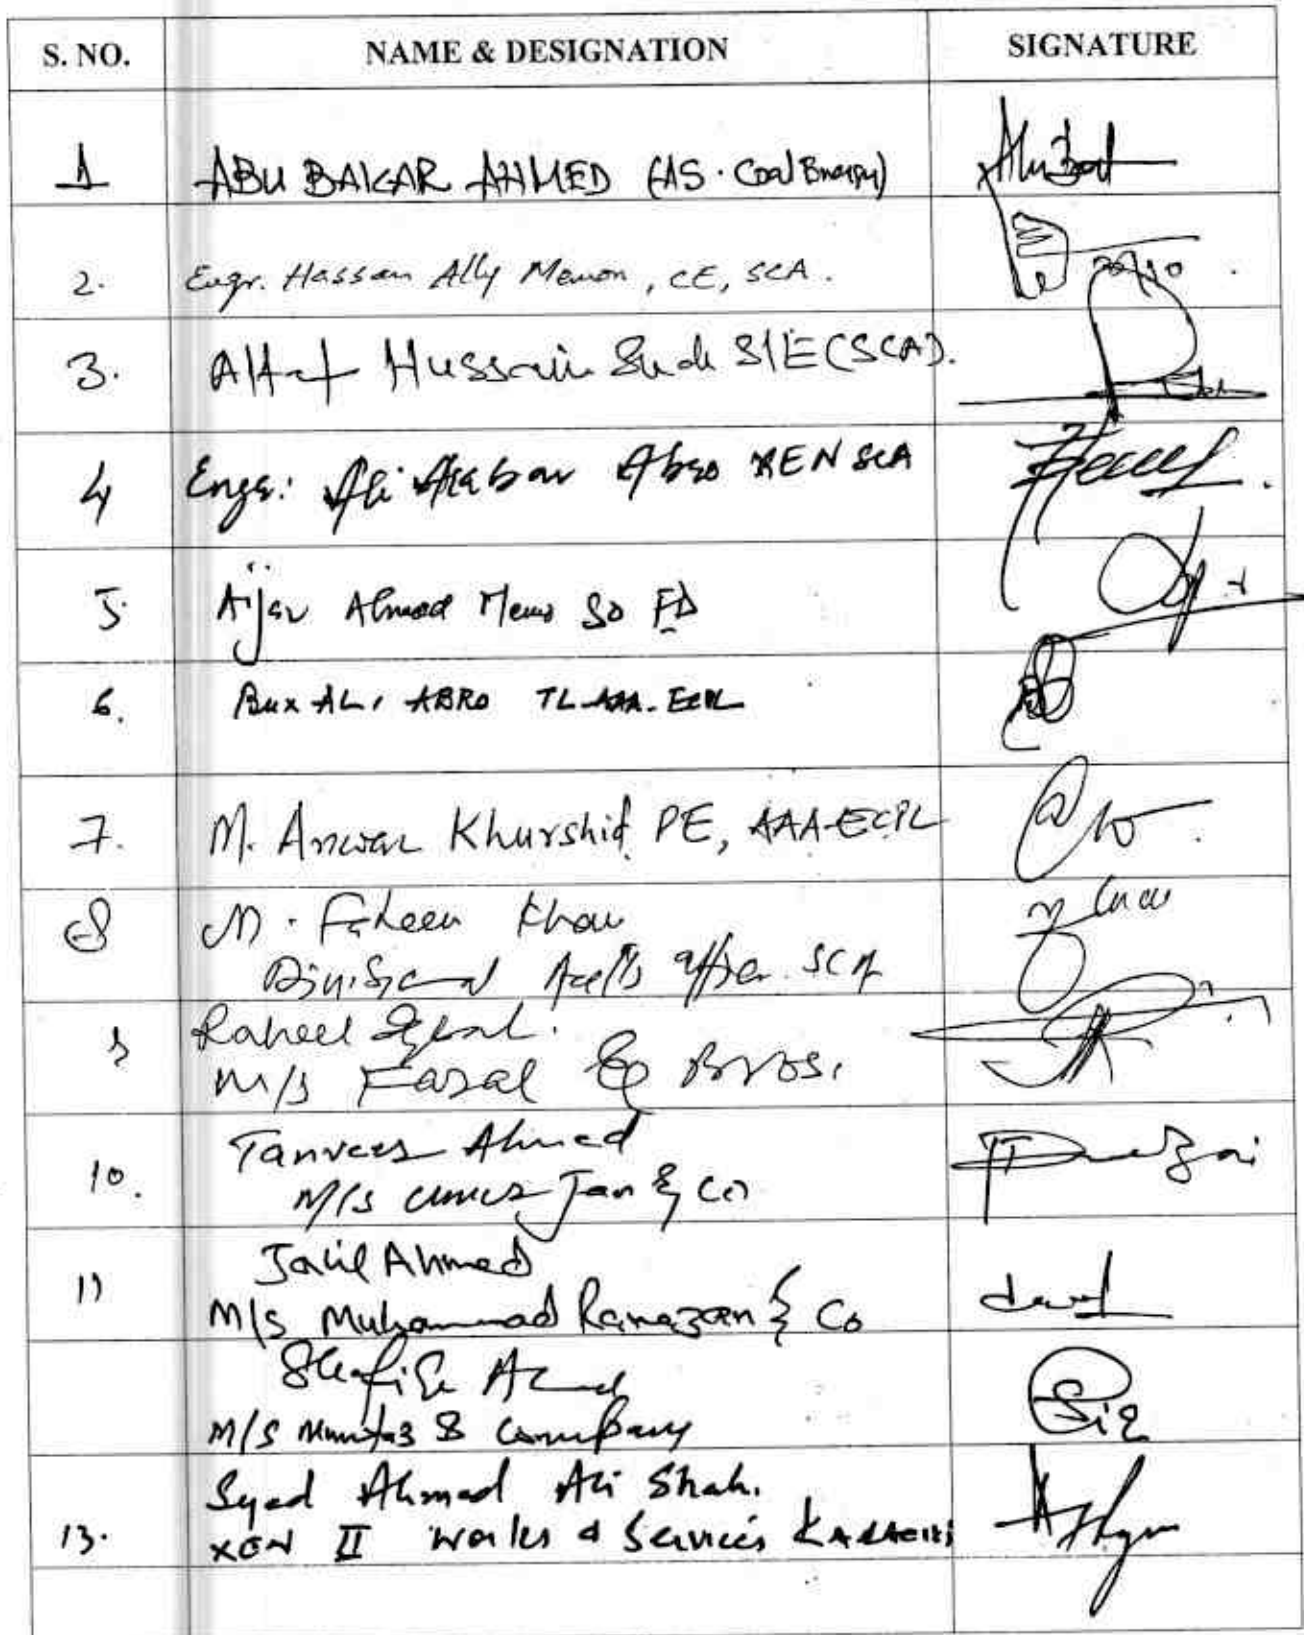 S. NO. NAME & DESIGNATION SIGNATURE
1 ABU BAKAR AHMED (AS. Coal Energy)
2. Engr. Hassan Ally Memon, CE, SCA.
3. Altaf Hussain S/E (SCA).
4 Engr: Ali Akbar Abro XEN SCA
5. Aijaz Ahmed Memo SO FD
6. Bux ALI ABRO TL-AAA-ECPL
7. M. Anwar Khurshid PE, AAA-ECPL
8 M. Faheem Khan
Divisional Acctts Officer SCA
9 Raheel Iqbal.
M/S Fazal & Bros.
10. Tanveer Ahmed
M/S Umer Jan & Co
11 Jalil Ahmed
M/S Muhammad Ramazan & Co
Shafiq Ahmed
M/S Mumtaz & Company
13. Syed Ahmad Ali Shah.
XEN II Works & Services KARACHI